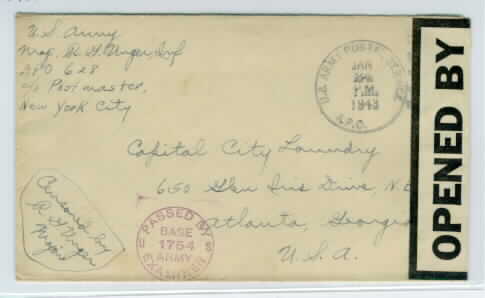 U.S. Army
Maj. R. G. Unger, Inf
APO 628
c/o Postmaster,
New York City
U.S. ARMY POSTAL SERVICE
JAN
P.M.
1943
A.P.O.
OPENED BY
Capitol City Laundry
650 Glen Iris Drive, N.E
Atlanta, Georgia
U.S.A.
Censored by
R G Unger
Major
PASSED BY
BASE
1754
ARMY
EXAMINER
U S